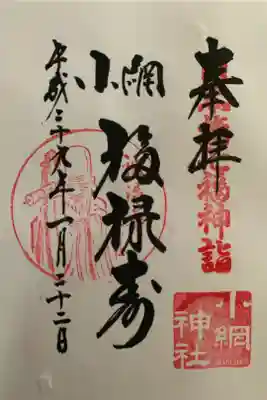 奉拝
福神詣
小網
福禄寿
平成二十九年一月二十二日
小網
神社